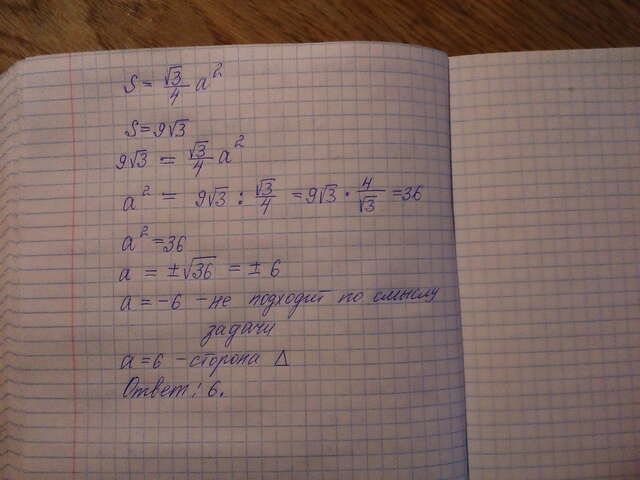 S = √3/4 a²
S = 9√3
9√3 = √3/4 a²
a² = 9√3 : √3/4 = 9√3 · 4/√3 = 36
a² = 36
a = ±√36 = ± 6
a = -6 - не подходит по смыслу
задачи
a = 6 - сторона Δ
Ответ: 6.